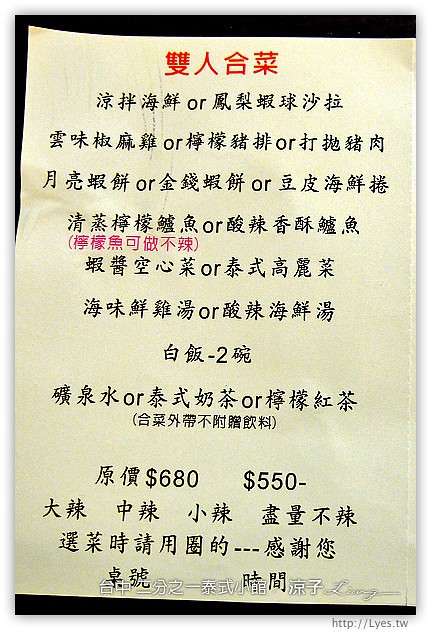 雙人合菜
涼拌海鮮or鳳梨蝦球沙拉
雲味椒麻雞or檸檬豬排or打拋豬肉
月亮蝦餅or金錢蝦餅or豆皮海鮮捲
清蒸檸檬鱸魚or酸辣香酥鱸魚
(檸檬魚可做不辣)
蝦醬空心菜or泰式高麗菜
海味鮮雞湯or酸辣海鮮湯
白飯-2碗
礦泉水or泰式奶茶or檸檬紅茶
(合菜外帶不附贈飲料)
原價$680 $550-
大辣 中辣 小辣 盡量不辣
選菜時請用圈的---感謝您
桌號 時間
台中 二分之一泰式小館 涼子
http://Lyes.tw